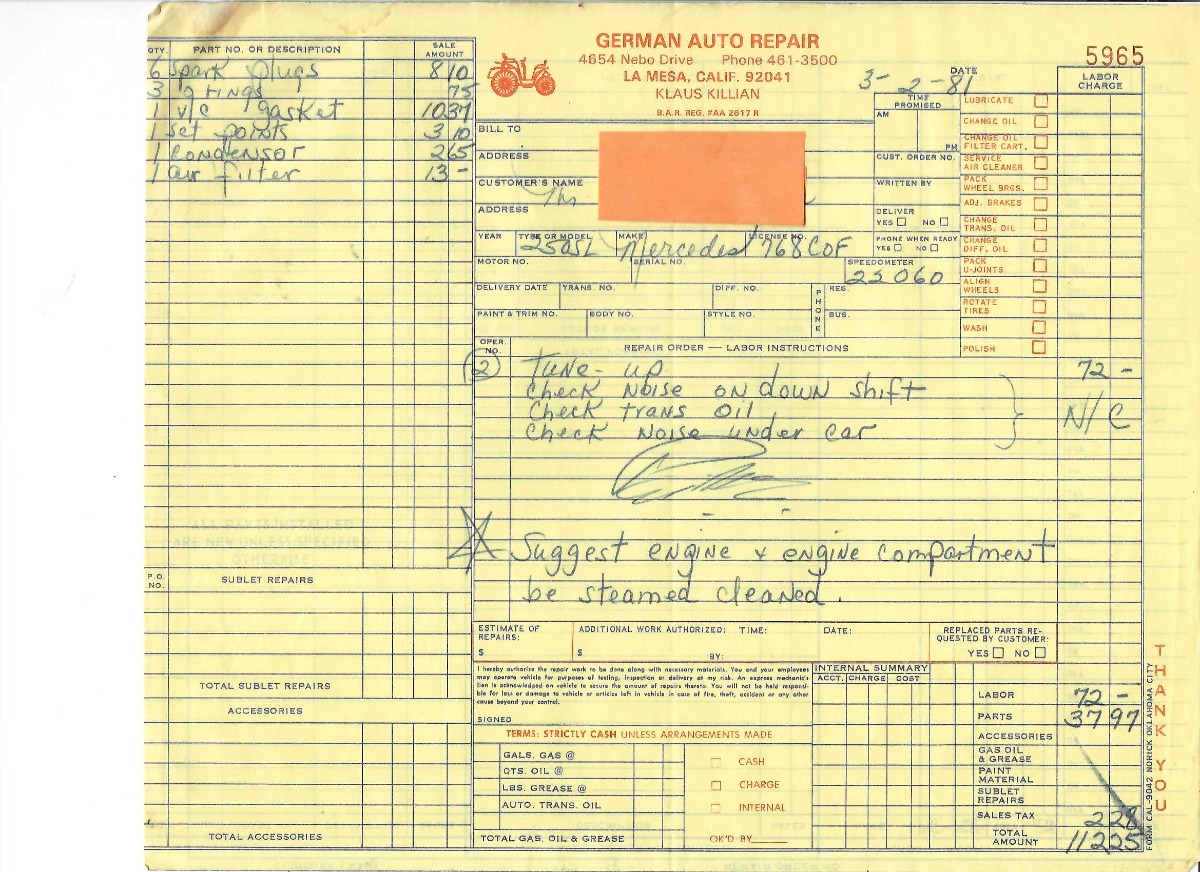 GERMAN AUTO REPAIR
4654 Nebo Drive Phone 461-3500
LA MESA, CALIF. 92041
KLAUS KILLIAN
B.A.R. REG. #AA 2617 R
5965
DATE 3-2-81
QTY. PART NO. OR DESCRIPTION SALE AMOUNT
6 Spark plugs 8 10
3 O rings 75
1 V/C gasket 10 37
1 set points 3 10
1 Condensor 2 65
1 air filter 13 -
ALL PARTS INSTALLED
ARE NEW UNLESS SPECIFIED
OTHERWISE
P.O. NO. SUBLET REPAIRS
TOTAL SUBLET REPAIRS
ACCESSORIES
TOTAL ACCESSORIES
BILL TO
ADDRESS
CUSTOMER'S NAME
ADDRESS
YEAR TYPE OR MODEL MAKE LICENSE NO.
250SL Mercedes 768COF
MOTOR NO. SERIAL NO. SPEEDOMETER
22060
DELIVERY DATE TRANS. NO. DIFF. NO. PHONE RES.
PAINT & TRIM NO. BODY NO. STYLE NO. BUS.
TIME PROMISED
AM
PM
CUST. ORDER NO.
WRITTEN BY
DELIVER
YES NO
PHONE WHEN READY
YES NO
LABOR CHARGE
LUBRICATE
CHANGE OIL
CHANGE OIL FILTER CART.
SERVICE AIR CLEANER
PACK WHEEL BRGS.
ADJ. BRAKES
CHANGE TRANS. OIL
CHANGE DIFF. OIL
PACK U-JOINTS
ALIGN WHEELS
ROTATE TIRES
WASH
POLISH
OPER. NO. REPAIR ORDER — LABOR INSTRUCTIONS
2 Tune-up 72 -
Check Noise on down shift
Check trans oil N/C
Check Noise under car
Suggest engine & engine compartment
be steamed cleaned.
ESTIMATE OF REPAIRS: $
ADDITIONAL WORK AUTHORIZED: TIME: DATE:
$ BY:
REPLACED PARTS REQUESTED BY CUSTOMER:
YES NO
I hereby authorize the repair work to be done along with necessary materials. You and your employees
may operate vehicle for purposes of testing, inspection or delivery at my risk. An express mechanic's
lien is acknowledged on vehicle to secure the amount of repairs thereto. You will not be held responsi-
ble for loss or damage to vehicle or articles left in vehicle in case of fire, theft, accident or any other
cause beyond your control.
SIGNED
TERMS: STRICTLY CASH UNLESS ARRANGEMENTS MADE
GALS. GAS @
QTS. OIL @
LBS. GREASE @
AUTO. TRANS. OIL
TOTAL GAS, OIL & GREASE
CASH
CHARGE
INTERNAL
OK'D BY
INTERNAL SUMMARY
ACCT. CHARGE COST
LABOR 72 -
PARTS 37 97
ACCESSORIES
GAS OIL & GREASE
PAINT MATERIAL
SUBLET REPAIRS
SALES TAX 2 28
TOTAL AMOUNT 112 25
FORM CAL-9042 NORICK OKLAHOMA CITY
THANK YOU